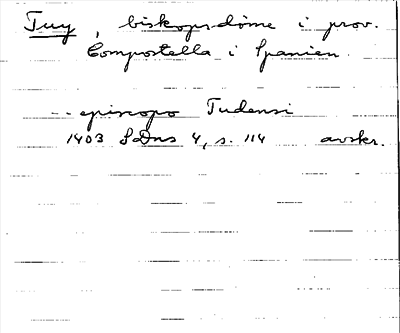 Tuy, biskopsdöme i prov.
Compostella i Spanien.
-- episcopo Tudensi
1403 SDns 4, s. 114 avskr.